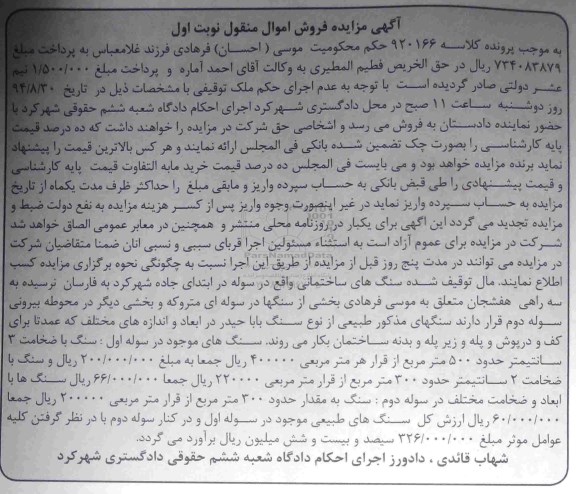 آگهی مزایده فروش اموال منقول نوبت اول
به موجب پرونده کلاسه ۹۲۰۱۶۶ حکم محکومیت موسی ( احسان) فرهادی فرزند غلامعباس به پرداخت مبلغ
۷۳۴۰۸۳۸۷۹ ریال در حق الخریص فطیم المطیری به وکالت آقای احمد آماره و پرداخت مبلغ ۱/۵۰۰/۰۰۰ نیم
عشر دولتی صادر گردیده است با توجه به عدم اجرای حکم ملک توقیفی با مشخصات ذیل در تاریخ ۹۴/۸/۳۰
روز دوشنبه ساعت ۱۱ صبح در محل دادگستری شهرکرد اجرای احکام دادگاه شعبه ششم حقوقی شهرکرد با
حضور نماینده دادستان به فروش می رسد و اشخاصی حق شرکت در مزایده را خواهند داشت که ده درصد قیمت
پایه کارشناسی را بصورت چک تضمین شده بانکی فی المجلس ارائه نمایند و هر کس بالاترین قیمت را پیشنهاد
نماید برنده مزایده خواهد بود و می بایست فی المجلس ده درصد قیمت خرید مابه التفاوت قیمت پایه کارشناسی
و قیمت پیشنهادی را طی قبض بانکی به حساب سپرده واریز و مابقی مبلغ را حداکثر ظرف مدت یکماه از تاریخ
مزایده به حساب سپرده واریز نماید در غیر اینصورت وجوه واریز پس از کسر هزینه مزایده به نفع دولت ضبط و
مزایده تجدید می گردد این آگهی برای یکبار در روزنامه محلی منتشر و همچنین در معابر عمومی الصاق خواهد شد
شرکت در مزایده برای عموم آزاد است به استثناء مسئولین اجرا قربای سببی و نسبی انان ضمنا متقاضیان شرکت
در مزایده می توانند در مدت پنج روز قبل از مزایده از طریق این اجرا نسبت به چگونگی نحوه برگزاری مزایده کسب
اطلاع نمایند. مال توقیف شده سنگ های ساختمانی واقع در سوله در ابتدای جاده شهرکرد به فارسان نرسیده به
سه راهی هفشجان متعلق به موسی فرهادی بخشی از سنگها در سوله ای متروکه و بخشی دیگر در محوطه بیرونی
سوله دوم قرار دارند سنگهای مذکور طبیعی از نوع سنگ بابا حیدر در ابعاد و اندازه های مختلف که عمدتا برای
کف و درپوش و پله و زیر پله و بدنه ساختمان بکار می روند. سنگ های موجود در سوله اول : سنگ با ضخامت ۳
سانتیمتر حدود ۵۰۰ متر مربع از قرار هر متر مربعی ۴۰۰۰۰۰ ریال جمعا به مبلغ ۲۰۰/۰۰۰/۰۰۰ ریال و سنگ با
ضخامت ۲ سانتیمتر حدود ۳۰۰ متر مربع از قرار متر مربعی ۲۲۰۰۰۰ ریال جمعا ۶۶/۰۰۰/۰۰۰ ریال سنگ ها با
ابعاد و ضخامت مختلف در سوله دوم : سنگ به مقدار حدود ۳۰۰ متر مربع از قرار متر مربعی ۲۰۰۰۰۰ ریال جمعا
۶۰/۰۰۰/۰۰۰ ریال ارزش کل سنگ های طبیعی موجود در سوله اول و در کنار سوله دوم با در نظر گرفتن کلیه
عوامل موثر مبلغ ۳۲۶/۰۰۰/۰۰۰ سیصد و بیست و شش میلیون ریال برآورد می گردد.
شهاب قائدی ، دادورز اجرای احکام دادگاه شعبه ششم حقوقی دادگستری شهرکرد